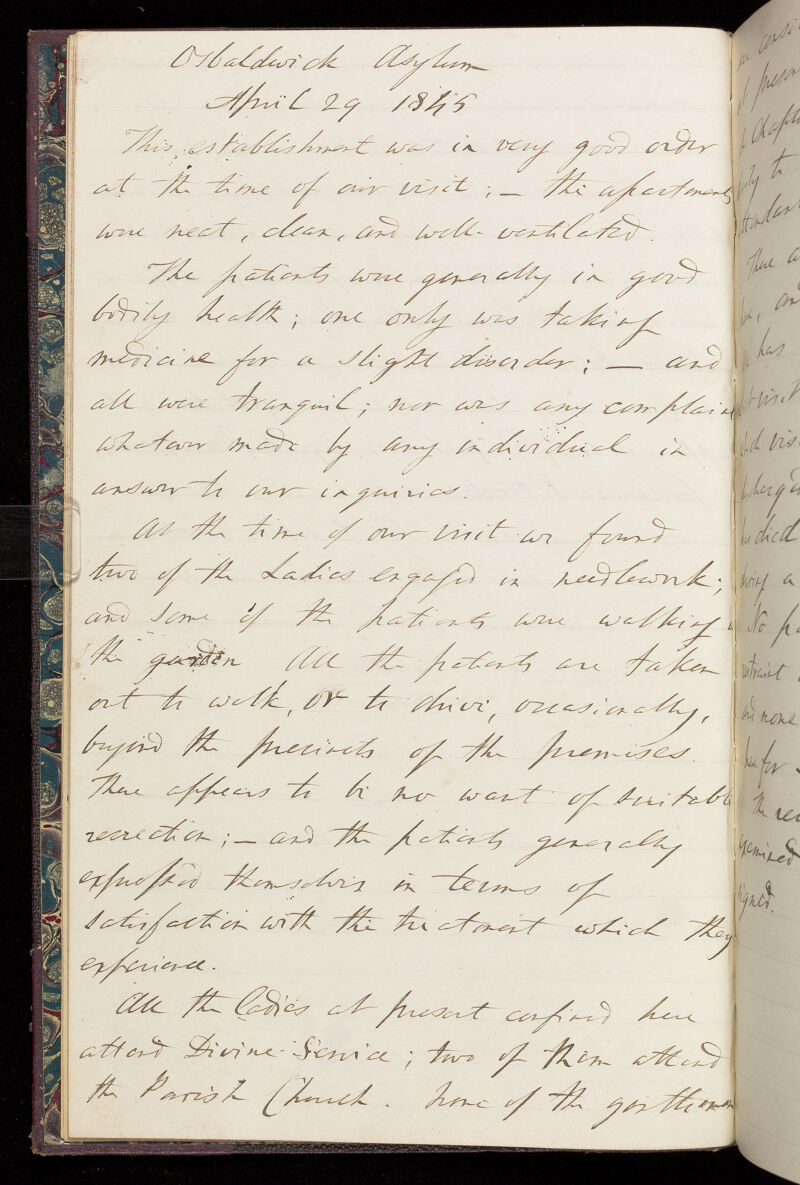 Osbaldwick Asylum
April 29 1845
This establishment was in very good order
at the time of our visit; – the apartments
were neat, clean, and well-ventilated.
The patients were generally in good
bodily health; one only was taking
medicine for a slight disorder; – and
all were tranquil; nor was any complaint
whatever made by any individual in
answer to our inquiries.
At the time of our visit we found
two of the Ladies engaged in needlework;
and some of the patients were walking in
the garden All the patients are taken
out to walk, or to drive, occasionally,
beyond the precincts of the premises.
There appears to be no want of suitable
recreation; – and the patients generally
expressed themselves in terms of
satisfaction with the treatment which they
experience.
All the Ladies at present confined here
attend Divine Service; two of them attend
the Parish Church. None of the gentlemen
at present
Chapl
to
attendan
There a
and
has
visit
discharged
died
being a
No pa
restraint
and none
here for
The re
examined
signed.